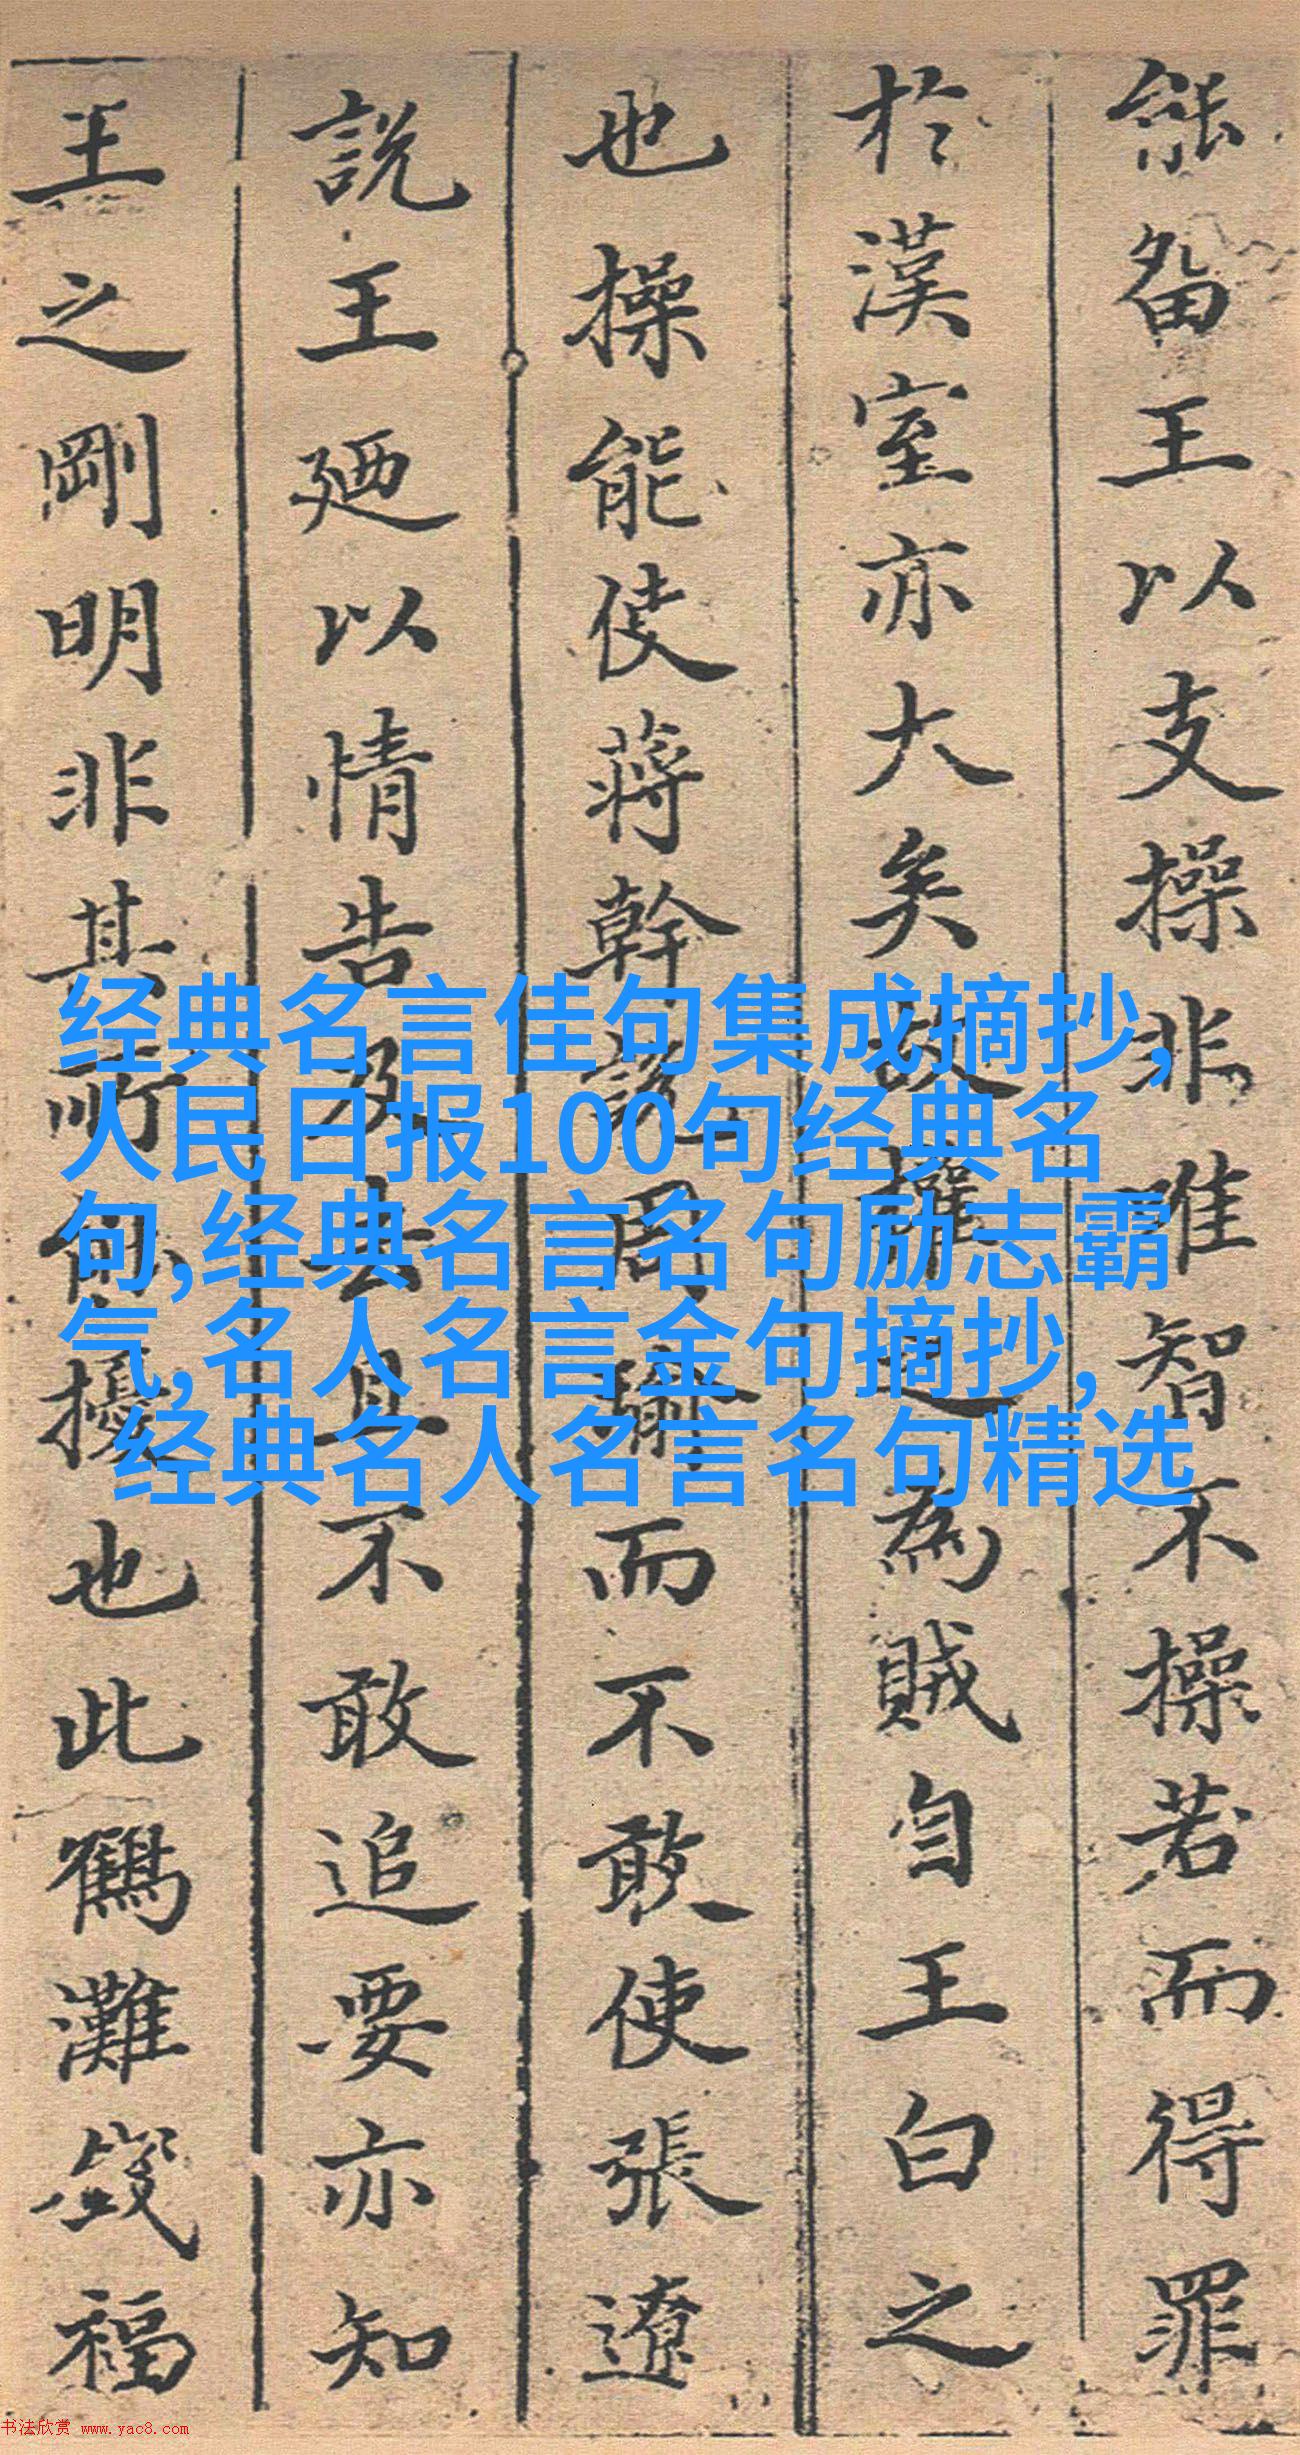 能留王以支操非唯智不操若而得罪
於漢室亦大矣故權為賊自王白之
也操能使蔣幹說周瑜而不敢使張遼
說王廼以情告及去且不敢追要亦知
王之剛明非其所擾也此鶴灘福
经典名言佳句集成摘抄,
人民日报100句经典名
句,经典名言名句励志霸
气,名人名言金句摘抄,
经典名人名言名句精选
书法欣赏 www.yac8.com